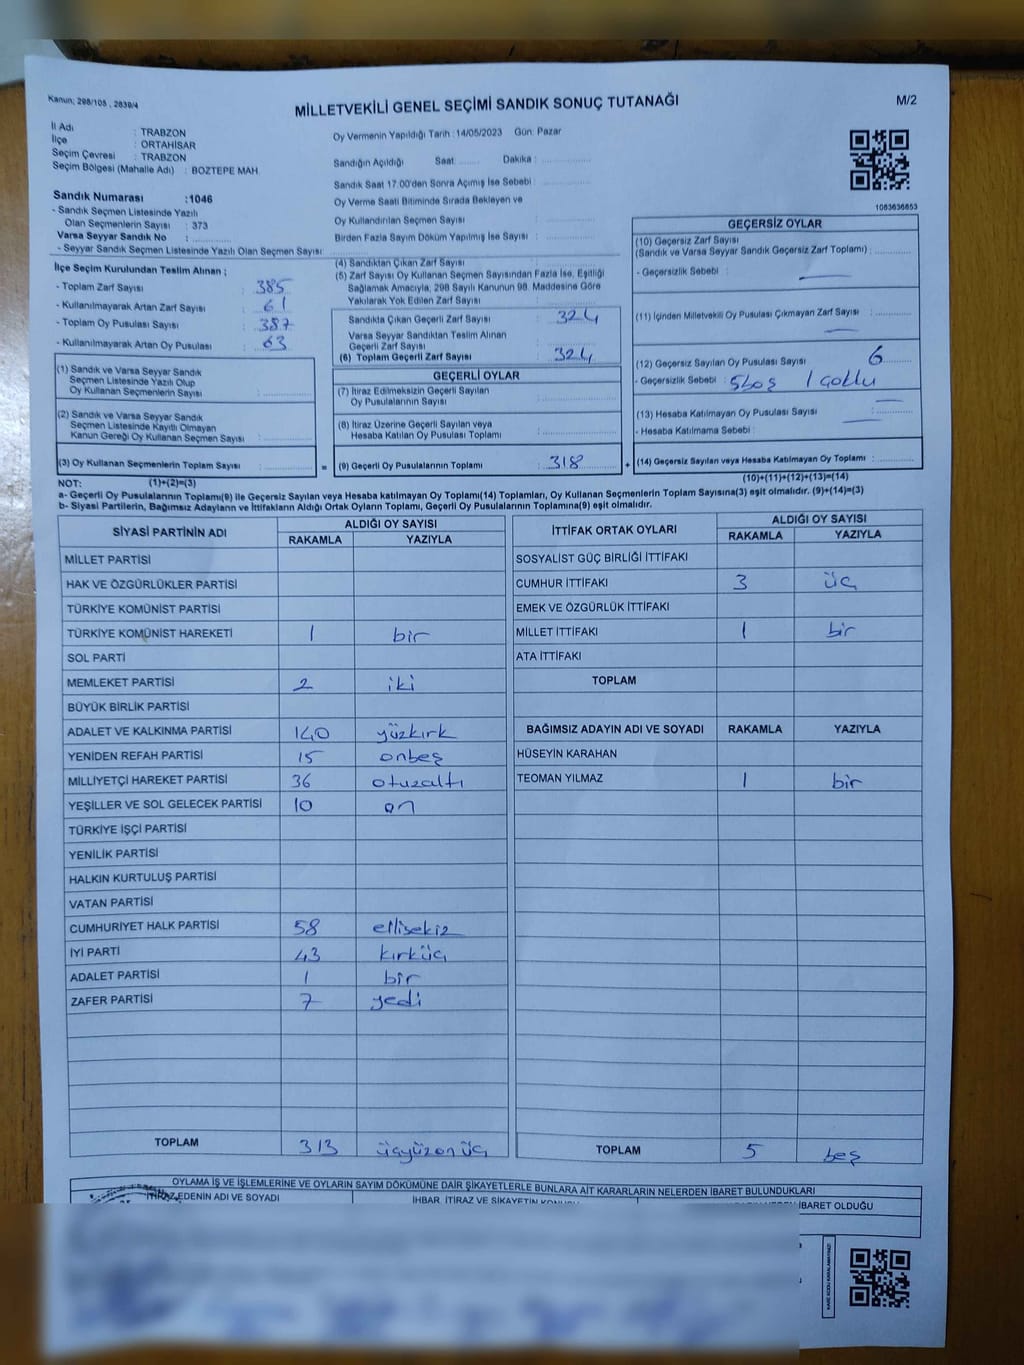 Kanun; 298/105 , 2839/4
MİLLETVEKİLİ GENEL SEÇİMİ SANDIK SONUÇ TUTANAĞI
M/2
İl Adı : TRABZON
İlçe : ORTAHİSAR
Seçim Çevresi : TRABZON
Seçim Bölgesi (Mahalle Adı) : BOZTEPE MAH.
Sandık Numarası :1046
- Sandık Seçmen Listesinde Yazılı
Olan Seçmenlerin Sayısı : 373
Varsa Seyyar Sandık No :
- Seyyar Sandık Seçmen Listesinde Yazılı Olan Seçmen Sayısı :
Oy Vermenin Yapıldığı Tarih :14/05/2023 Gün: Pazar
Sandığın Açıldığı Saat ....... Dakika : ..............
Sandık Saat 17.00'den Sonra Açımış İse Sebebi : ..............
Oy Verme Saati Bitiminde Sırada Bekleyen ve
Oy Kullandırılan Seçmen Sayısı : ..............
Birden Fazla Sayım Döküm Yapılmış İse Sayısı : ..............
1083636853
İlçe Seçim Kurulundan Teslim Alınan ;
- Toplam Zarf Sayısı : 385
- Kullanılmayarak Artan Zarf Sayısı : 61
- Toplam Oy Pusulası Sayısı : 387
- Kullanılmayarak Artan Oy Pusulası : 63
(1) Sandık ve Varsa Seyyar Sandık
Seçmen Listesinde Yazılı Olup
Oy Kullanan Seçmenlerin Sayısı : ..............
(2) Sandık ve Varsa Seyyar Sandık
Seçmen Listesinde Kayıtlı Olmayan
Kanun Gereği Oy Kullanan Seçmen Sayısı : ..............
(3) Oy Kullanan Seçmenlerin Toplam Sayısı : ..............
(4) Sandıktan Çıkan Zarf Sayısı : ..............
(5) Zarf Sayısı Oy Kullanan Seçmen Sayısından Fazla İse, Eşitliği
Sağlamak Amacıyla, 298 Sayılı Kanunun 98. Maddesine Göre
Yakılarak Yok Edilen Zarf Sayısı : ..............
Sandıkta Çıkan Geçerli Zarf Sayısı : 324
Varsa Seyyar Sandıktan Teslim Alınan
Geçerli Zarf Sayısı : ..............
(6) Toplam Geçerli Zarf Sayısı : 324
GEÇERLİ OYLAR
(7) İtiraz Edilmeksizin Geçerli Sayılan
Oy Pusulalarının Sayısı : ..............
(8) İtiraz Üzerine Geçerli Sayılan veya
Hesaba Katılan Oy Pusulası Toplamı : ..............
= (9) Geçerli Oy Pusulalarının Toplamı : 318
GEÇERSİZ OYLAR
(10) Geçersiz Zarf Sayısı
(Sandık ve Varsa Seyyar Sandık Geçersiz Zarf Toplamı) : ..........
- Geçersizlik Sebebi :
(11) İçinden Milletvekili Oy Pusulası Çıkmayan Zarf Sayısı : ..........
(12) Geçersiz Sayılan Oy Pusulası Sayısı : 6
- Geçersizlik Sebebi : 5 boş 1 çoklu
(13) Hesaba Katılmayan Oy Pusulası Sayısı : ..........
- Hesaba Katılmama Sebebi :
+ (14) Geçersiz Sayılan veya Hesaba Katılmayan Oy Toplamı : ..........
NOT: (1)+(2)=(3)
(10)+(11)+(12)+(13)=(14)
a- Geçerli Oy Pusulalarının Toplamı(9) ile Geçersiz Sayılan veya Hesaba katılmayan Oy Toplamı(14) Toplamları, Oy Kullanan Seçmenlerin Toplam Sayısına(3) eşit olmalıdır. (9)+(14)=(3)
b- Siyasi Partilerin, Bağımsız Adayların ve İttifakların Aldığı Ortak Oyların Toplamı, Geçerli Oy Pusulalarının Toplamına(9) eşit olmalıdır.
SİYASİ PARTİNİN ADI
ALDIĞI OY SAYISI
RAKAMLA YAZIYLA
MİLLET PARTİSİ
HAK VE ÖZGÜRLÜKLER PARTİSİ
TÜRKİYE KOMÜNİST PARTİSİ
TÜRKİYE KOMÜNİST HAREKETİ 1 bir
SOL PARTİ
MEMLEKET PARTİSİ 2 iki
BÜYÜK BİRLİK PARTİSİ
ADALET VE KALKINMA PARTİSİ 140 yüzkırk
YENİDEN REFAH PARTİSİ 15 onbeş
MİLLİYETÇİ HAREKET PARTİSİ 36 otuzaltı
YEŞİLLER VE SOL GELECEK PARTİSİ 10 on
TÜRKİYE İŞÇİ PARTİSİ
YENİLİK PARTİSİ
HALKIN KURTULUŞ PARTİSİ
VATAN PARTİSİ
CUMHURİYET HALK PARTİSİ 58 ellisekiz
İYİ PARTİ 43 kırküç
ADALET PARTİSİ 1 bir
ZAFER PARTİSİ 7 yedi
TOPLAM 313 üçyüzonüç
İTTİFAK ORTAK OYLARI
ALDIĞI OY SAYISI
RAKAMLA YAZIYLA
SOSYALİST GÜÇ BİRLİĞİ İTTİFAKI
CUMHUR İTTİFAKI 3 üç
EMEK VE ÖZGÜRLÜK İTTİFAKI
MİLLET İTTİFAKI 1 bir
ATA İTTİFAKI
TOPLAM
BAĞIMSIZ ADAYIN ADI VE SOYADI RAKAMLA YAZIYLA
HÜSEYİN KARAHAN
TEOMAN YILMAZ 1 bir
TOPLAM 5 beş
OYLAMA İŞ VE İŞLEMLERİNE VE OYLARIN SAYIM DÖKÜMÜNE DAİR ŞİKAYETLERLE BUNLARA AİT KARARLARIN NELERDEN İBARET BULUNDUKLARI
İTİRAZ EDENİN ADI VE SOYADI
İHBAR, İTİRAZ VE ŞİKAYETİN KONUSU
İBARET OLDUĞU